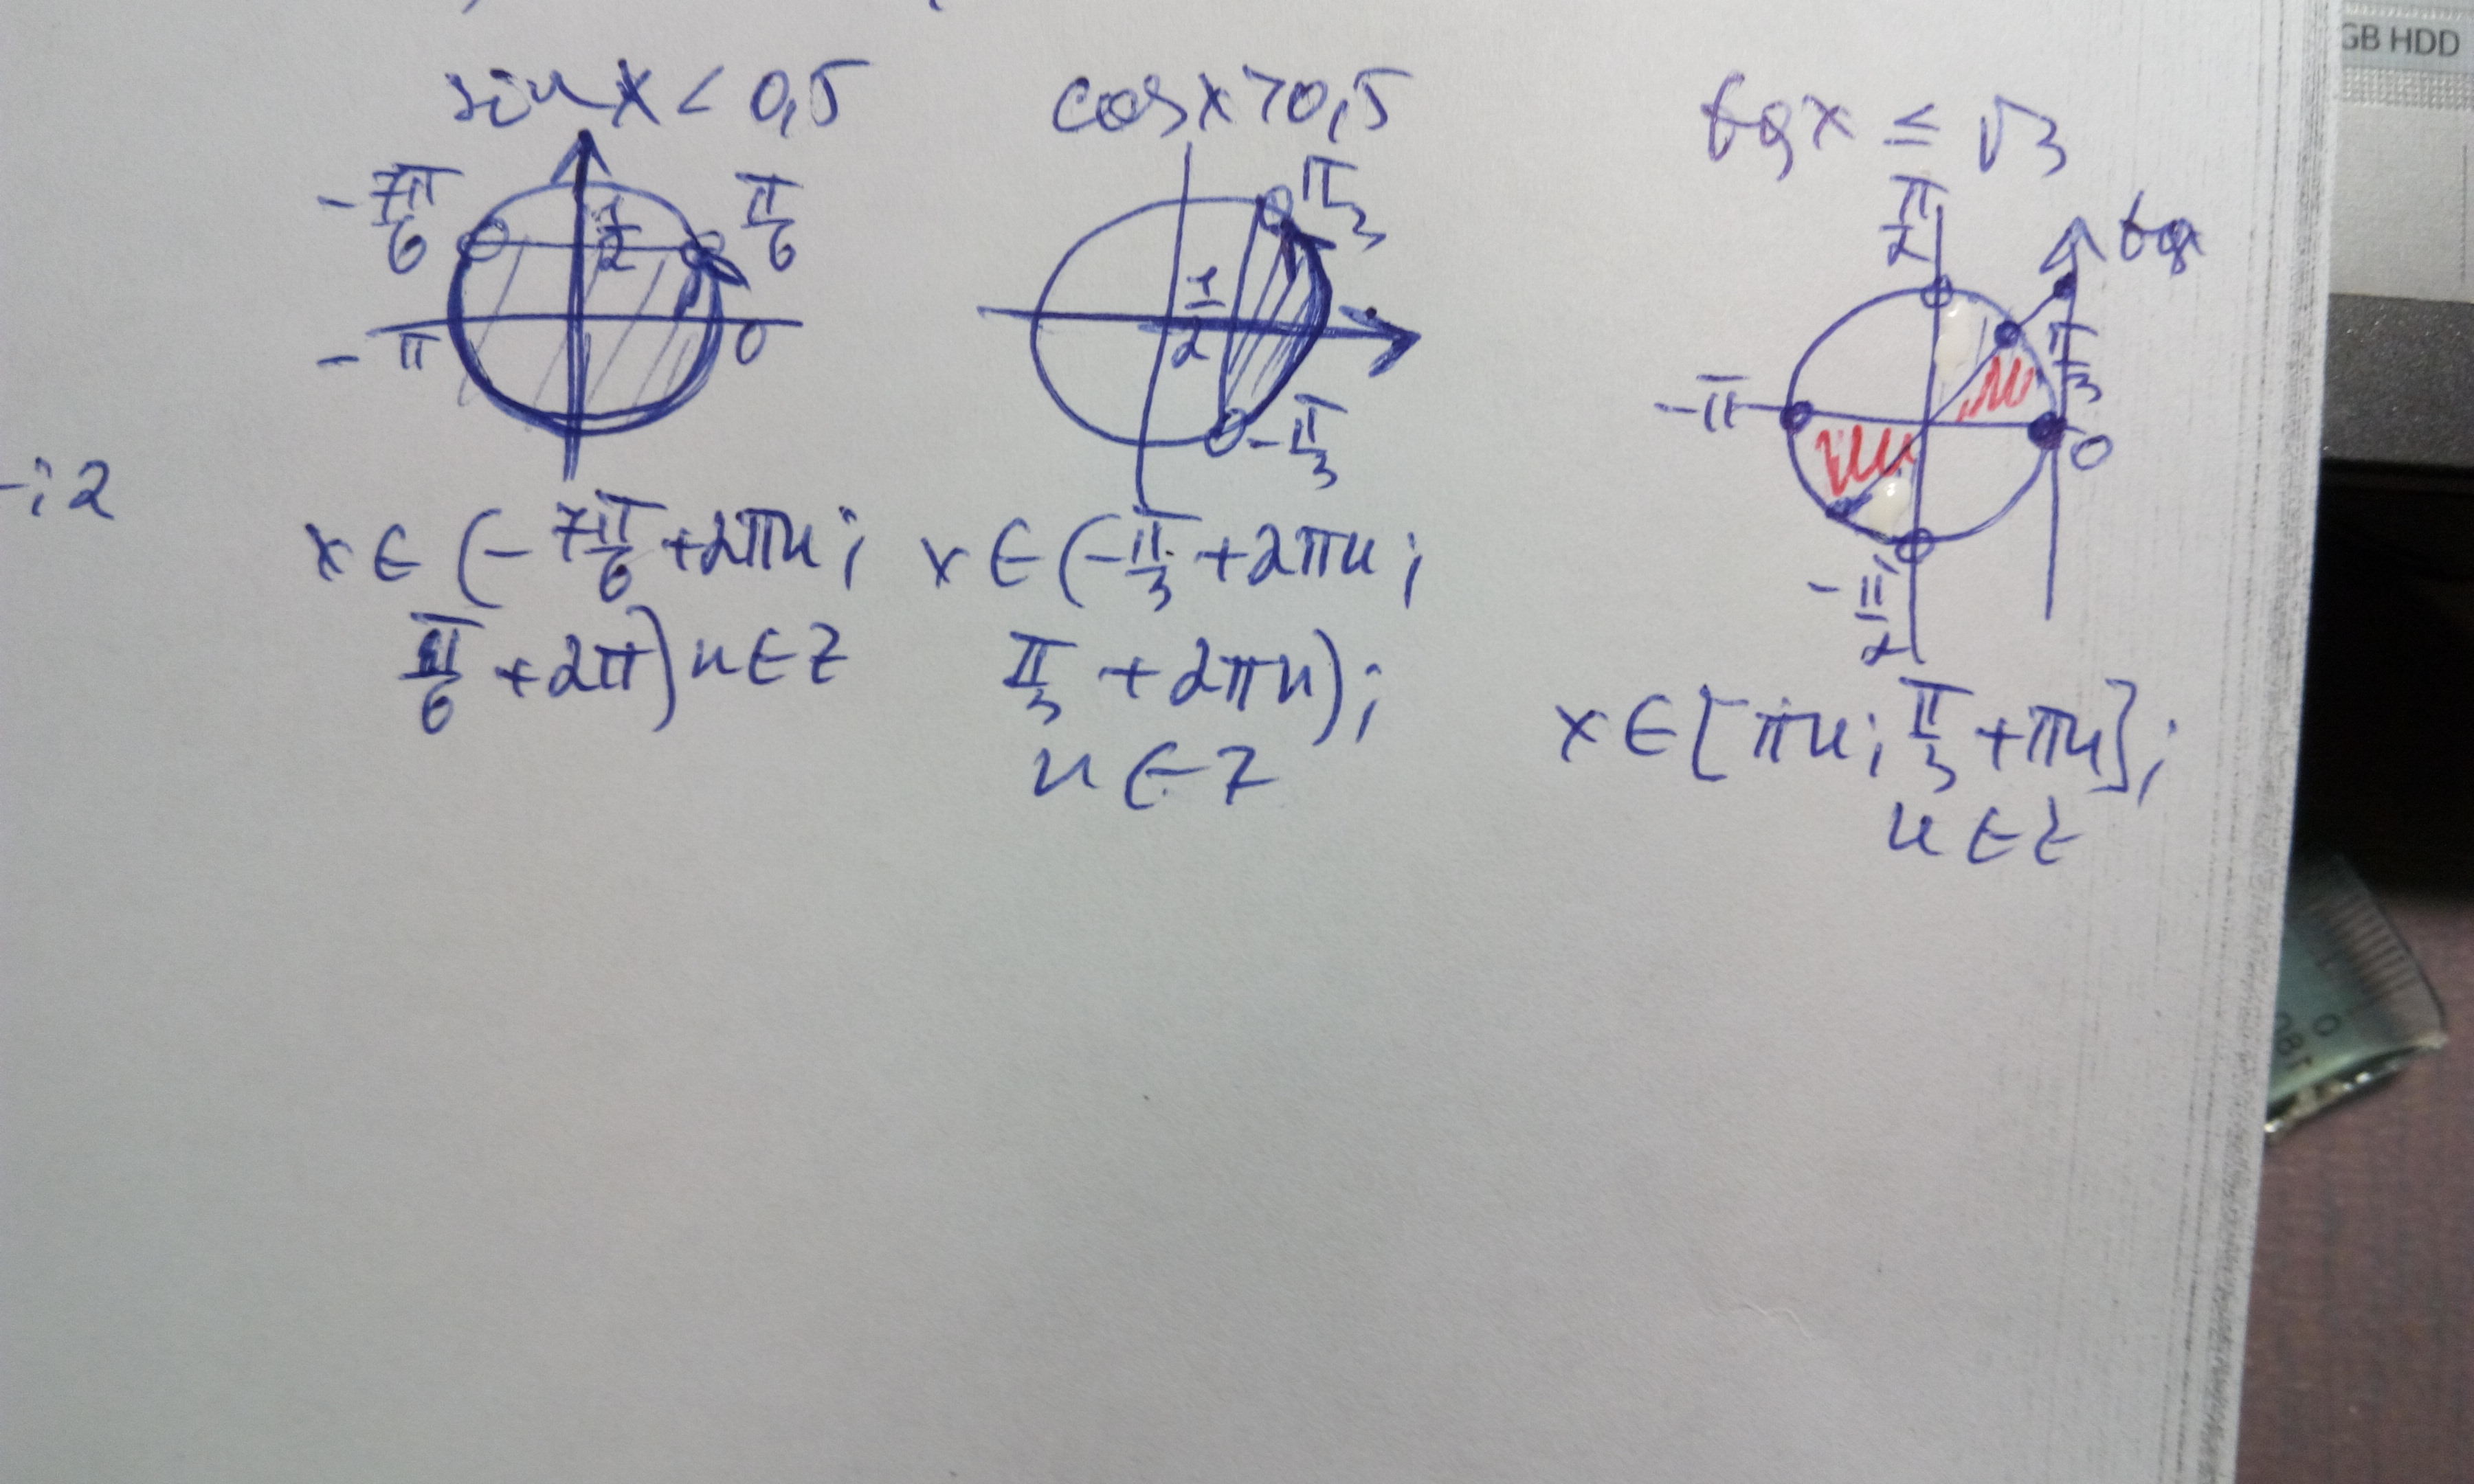 GB HDD
sin x < 0,5
-7π/6
π/6
1/2
-π
0
x ∈ (-7π/6 + 2πn;
π/6 + 2π) n ∈ Z
cos x > 0,5
π/3
1/2
-π/3
x ∈ (-π/3 + 2πn;
π/3 + 2πn);
n ∈ Z
tg x ≤ √3
π/2
tgx
π/3
-π
0
-π/2
x ∈ [πn; π/3 + πn];
n ∈ Z
-; 2